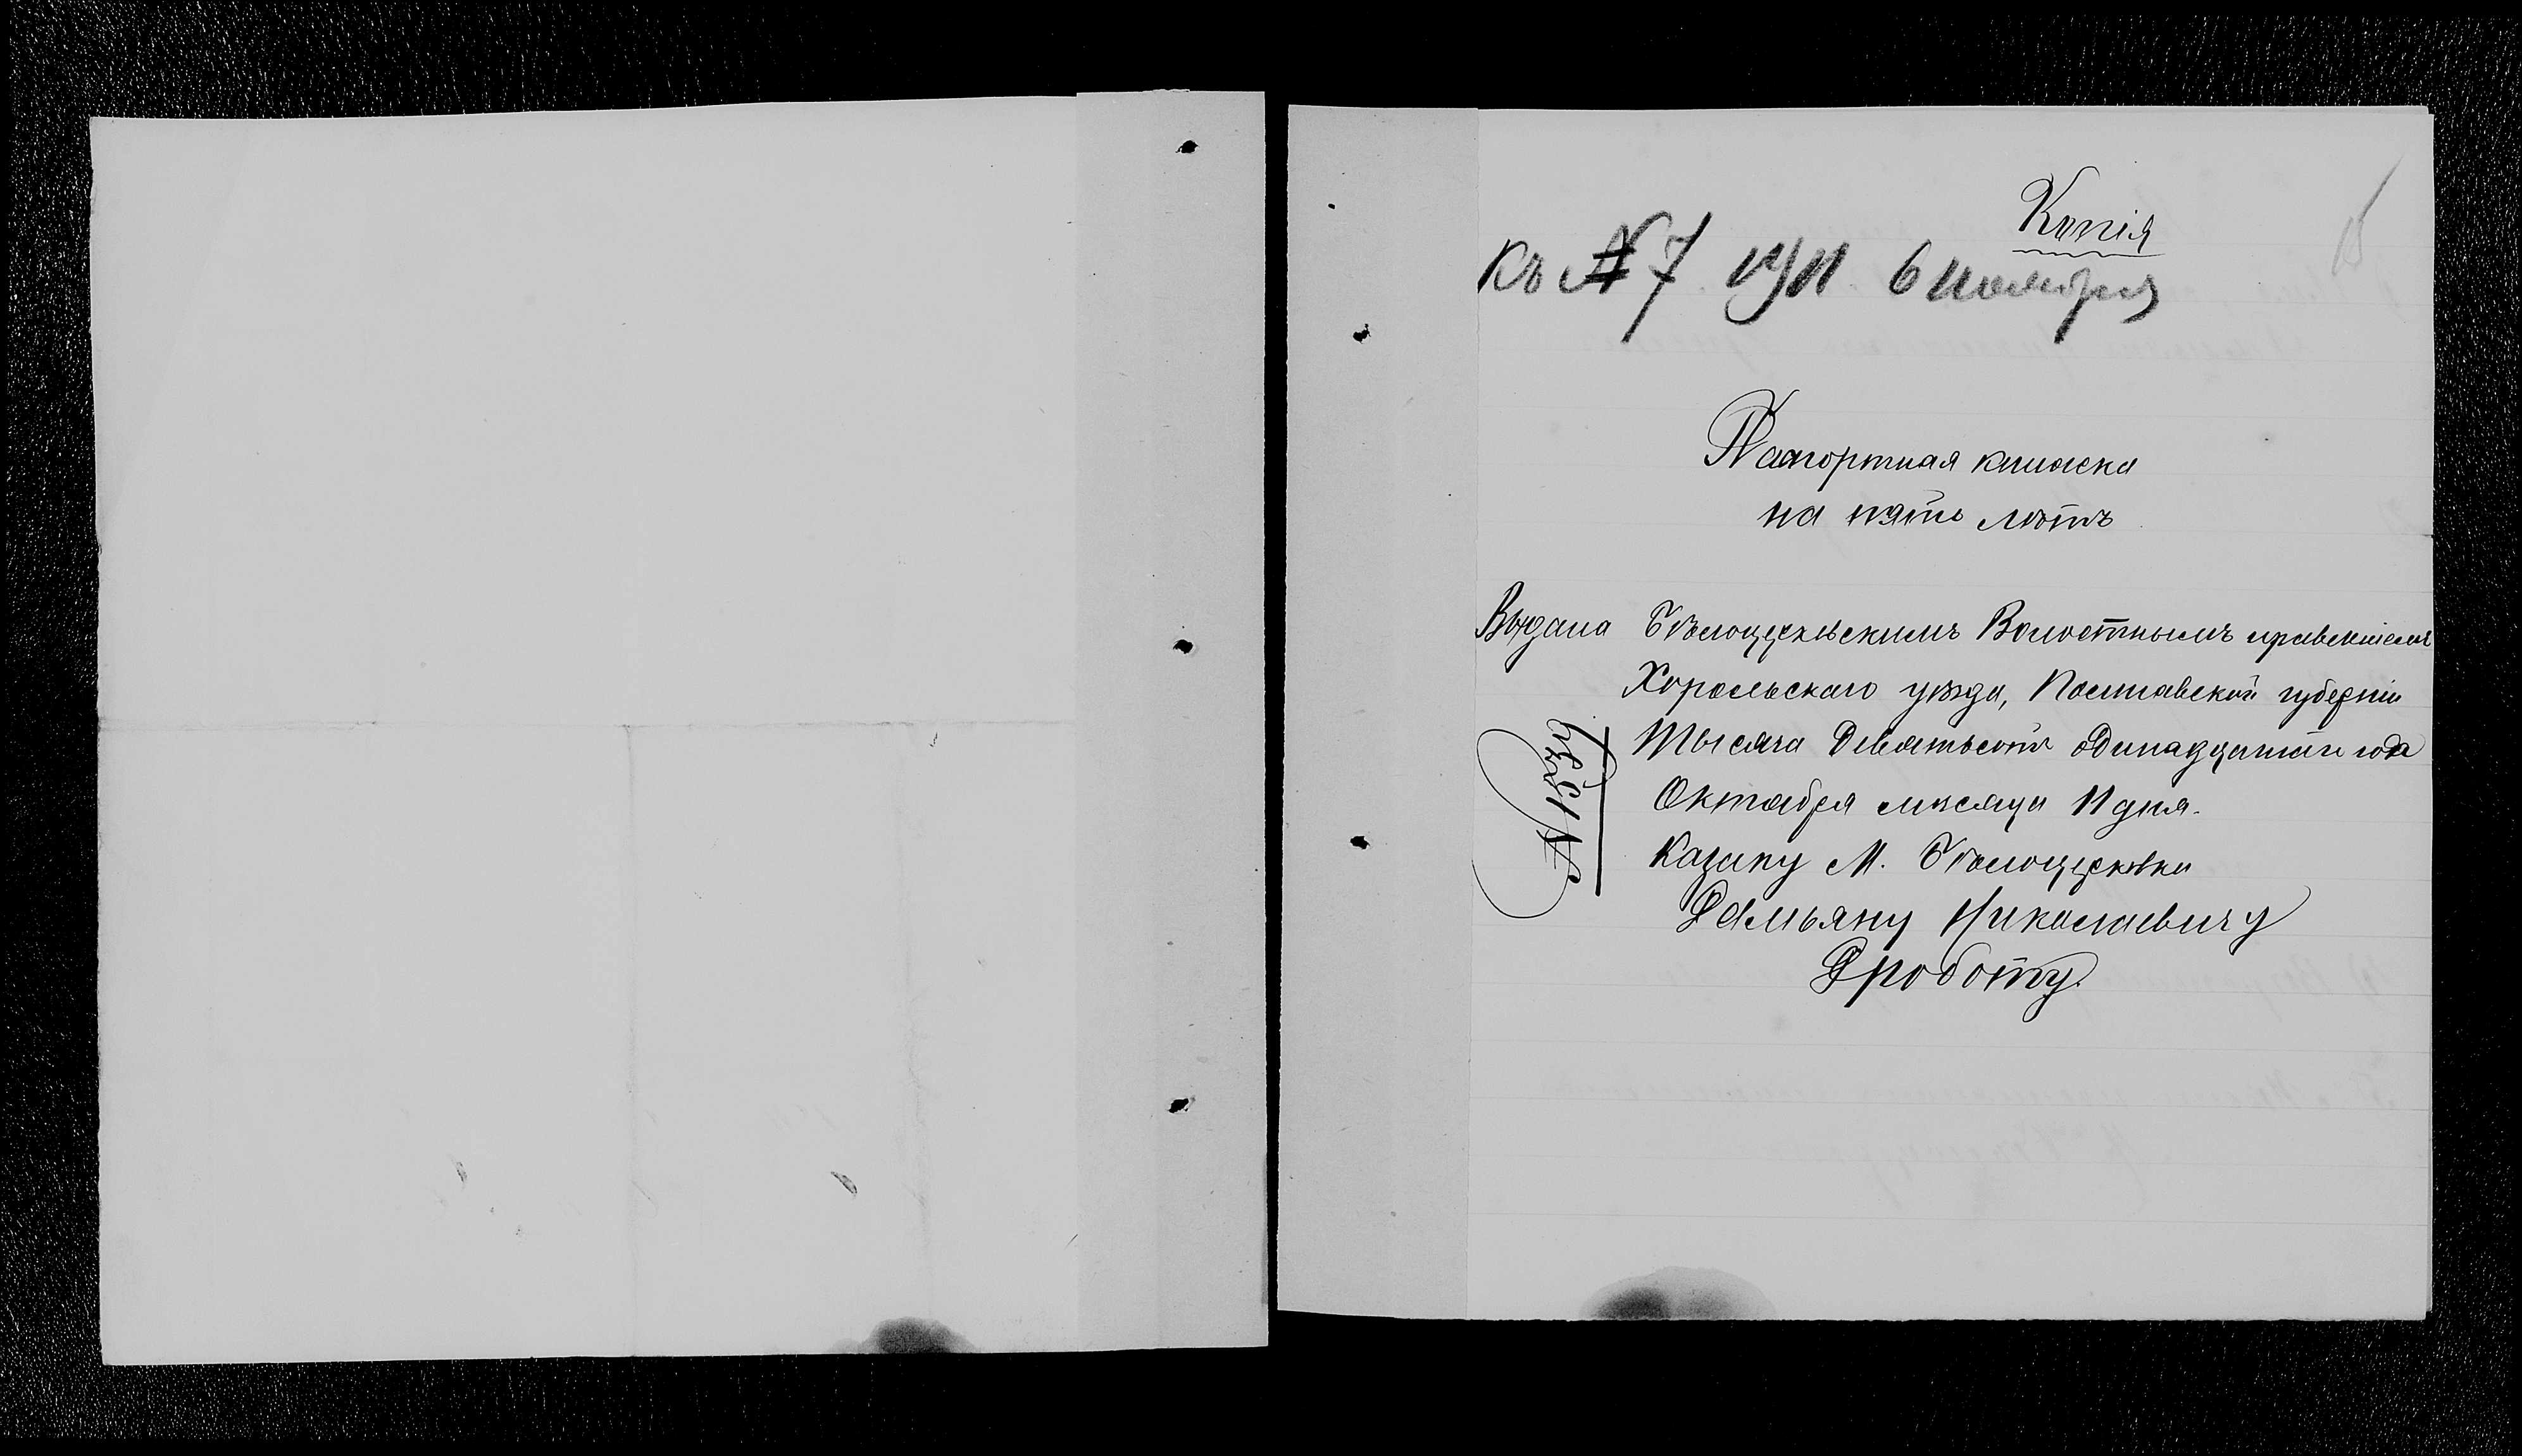 Копія
Къ № 7 1911 6 ноября
Паспортная книжска
на пять лѣтъ
Выдана Бѣлоцерковскимъ Волостнымъ правленіемъ
Хорольскаго уѣзда, Полтавской губерніи
Тысяча Девятьсотъ одинадцатаго года
Октября мѣсяца 11 дня.
Казаку М. Бѣлоцерковки
Демьяну Николаевичу
Дроботу.